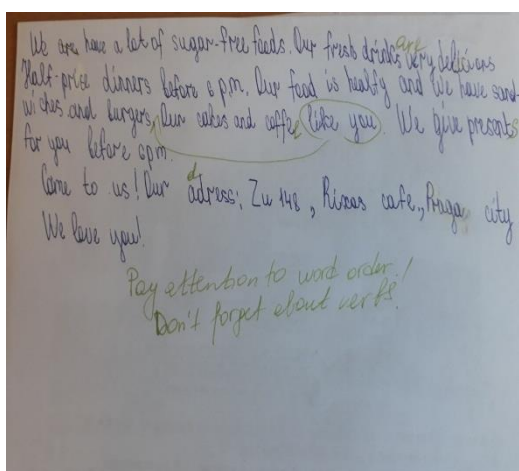 We are have a lot of sugar-free foods. Our fresh drinks are very delicious
Half-prise dinners before 6 pm. Our food is healfy and we have sand-
wiches and burgers, Our cakes and coffe like you. We give presents
for you before 6pm.
Come to us! Our adress: Zu 148, Rixos cafe., Praga city
We love you!
d
Pay attention to word order!
Don't forget about verbs!